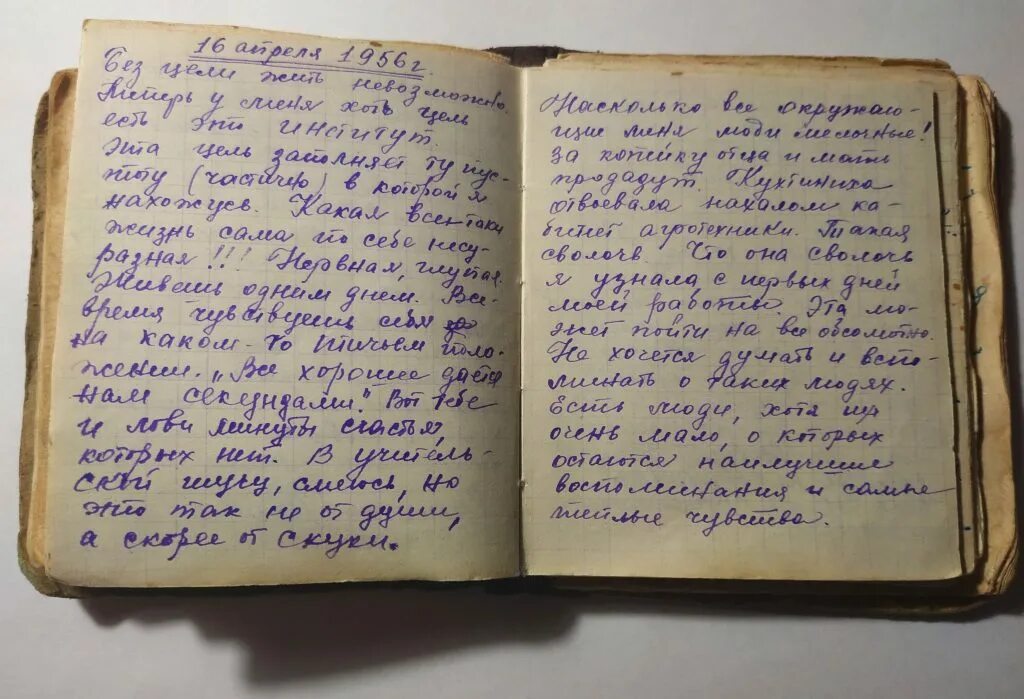 16 апреля 1956г.
Без цели жить невозможно.
Теперь у меня хоть цель
есть это институт.
Эта цель заполняет ту пус-
тоту (частично) в которой я
нахожусь. Какая всё-таки
жизнь сама по себе несу-
разная!!! Нервная, глупая.
Живешь одним днем. Все
время чувствуешь себя
на каком-то птичьем поло-
жении. „Все хорошее дается
нам секундами." Вот тебе
и лови минуты счастья,
которых нет. В учитель-
ской шучу, смеюсь, но
это так не от души,
а скорее от скуки.
Насколько все окружаю-
щие меня люди мелочные!
За копейку отца и мать
продадут. Кухтиниха
отвоевала нахалом ка-
бинет агротехники. Такая
сволочь. Что она сволочь
я узнала с первых дней
моей работы. Эта мо-
жет пойти на все абсолютно.
Не хочется думать и вспо-
минать о таких людях.
Есть люди, хотя их
очень мало, о которых
остаются наилучшие
воспоминания и самые
теплые чувства.